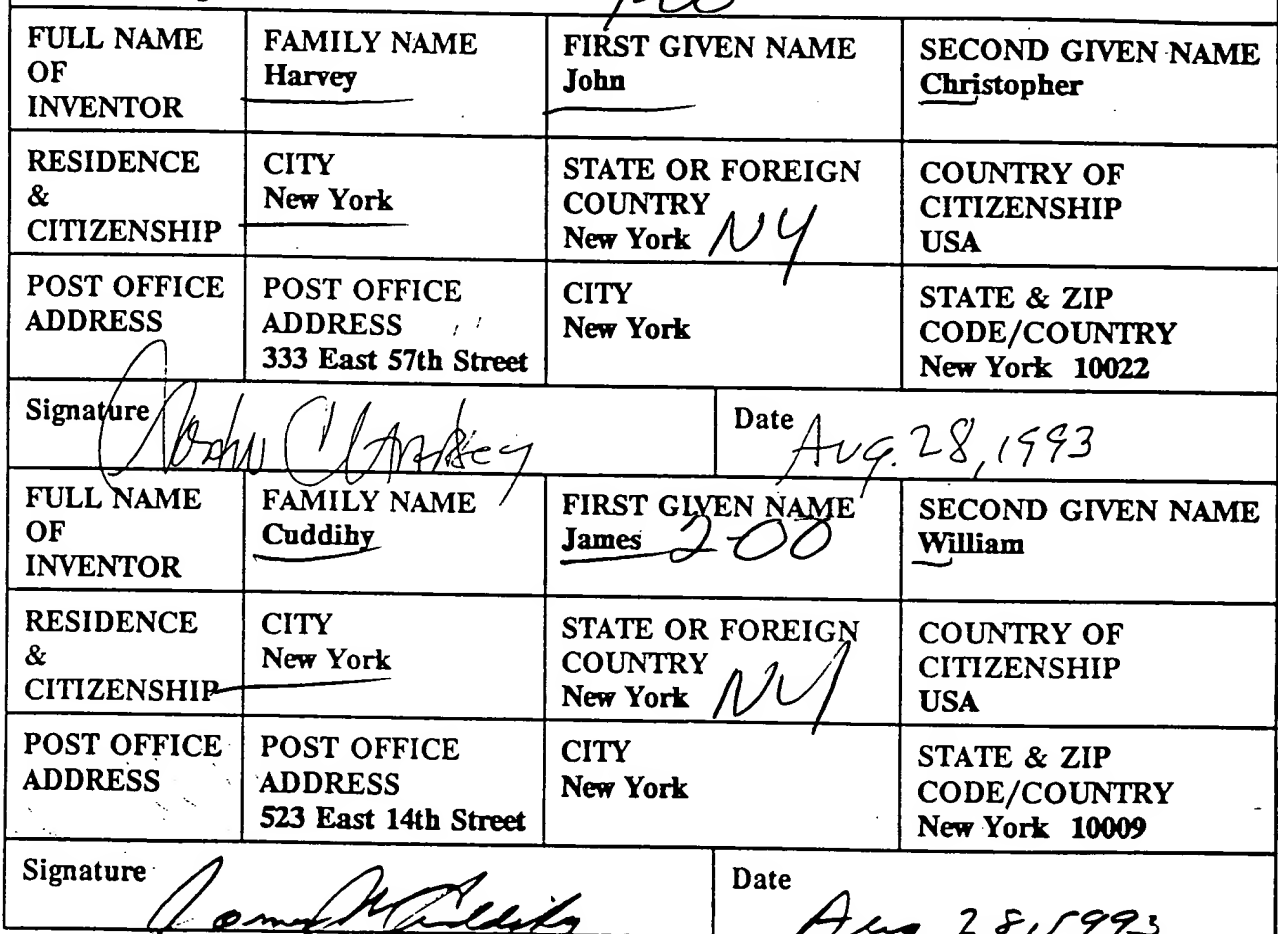 FULL NAME OF INVENTOR
FAMILY NAME
Harvey
FIRST GIVEN NAME
John
SECOND GIVEN NAME
Christopher
RESIDENCE & CITIZENSHIP
CITY
New York
STATE OR FOREIGN COUNTRY
New York NY
COUNTRY OF CITIZENSHIP
USA
POST OFFICE ADDRESS
POST OFFICE ADDRESS
333 East 57th Street
CITY
New York
STATE & ZIP CODE/COUNTRY
New York 10022
Signature
Date Aug. 28, 1993
FULL NAME OF INVENTOR
FAMILY NAME
Cuddihy
FIRST GIVEN NAME
James 200
SECOND GIVEN NAME
William
RESIDENCE & CITIZENSHIP
CITY
New York
STATE OR FOREIGN COUNTRY
New York NY
COUNTRY OF CITIZENSHIP
USA
POST OFFICE ADDRESS
POST OFFICE ADDRESS
523 East 14th Street
CITY
New York
STATE & ZIP CODE/COUNTRY
New York 10009
Signature
Date Aug 28, 1993